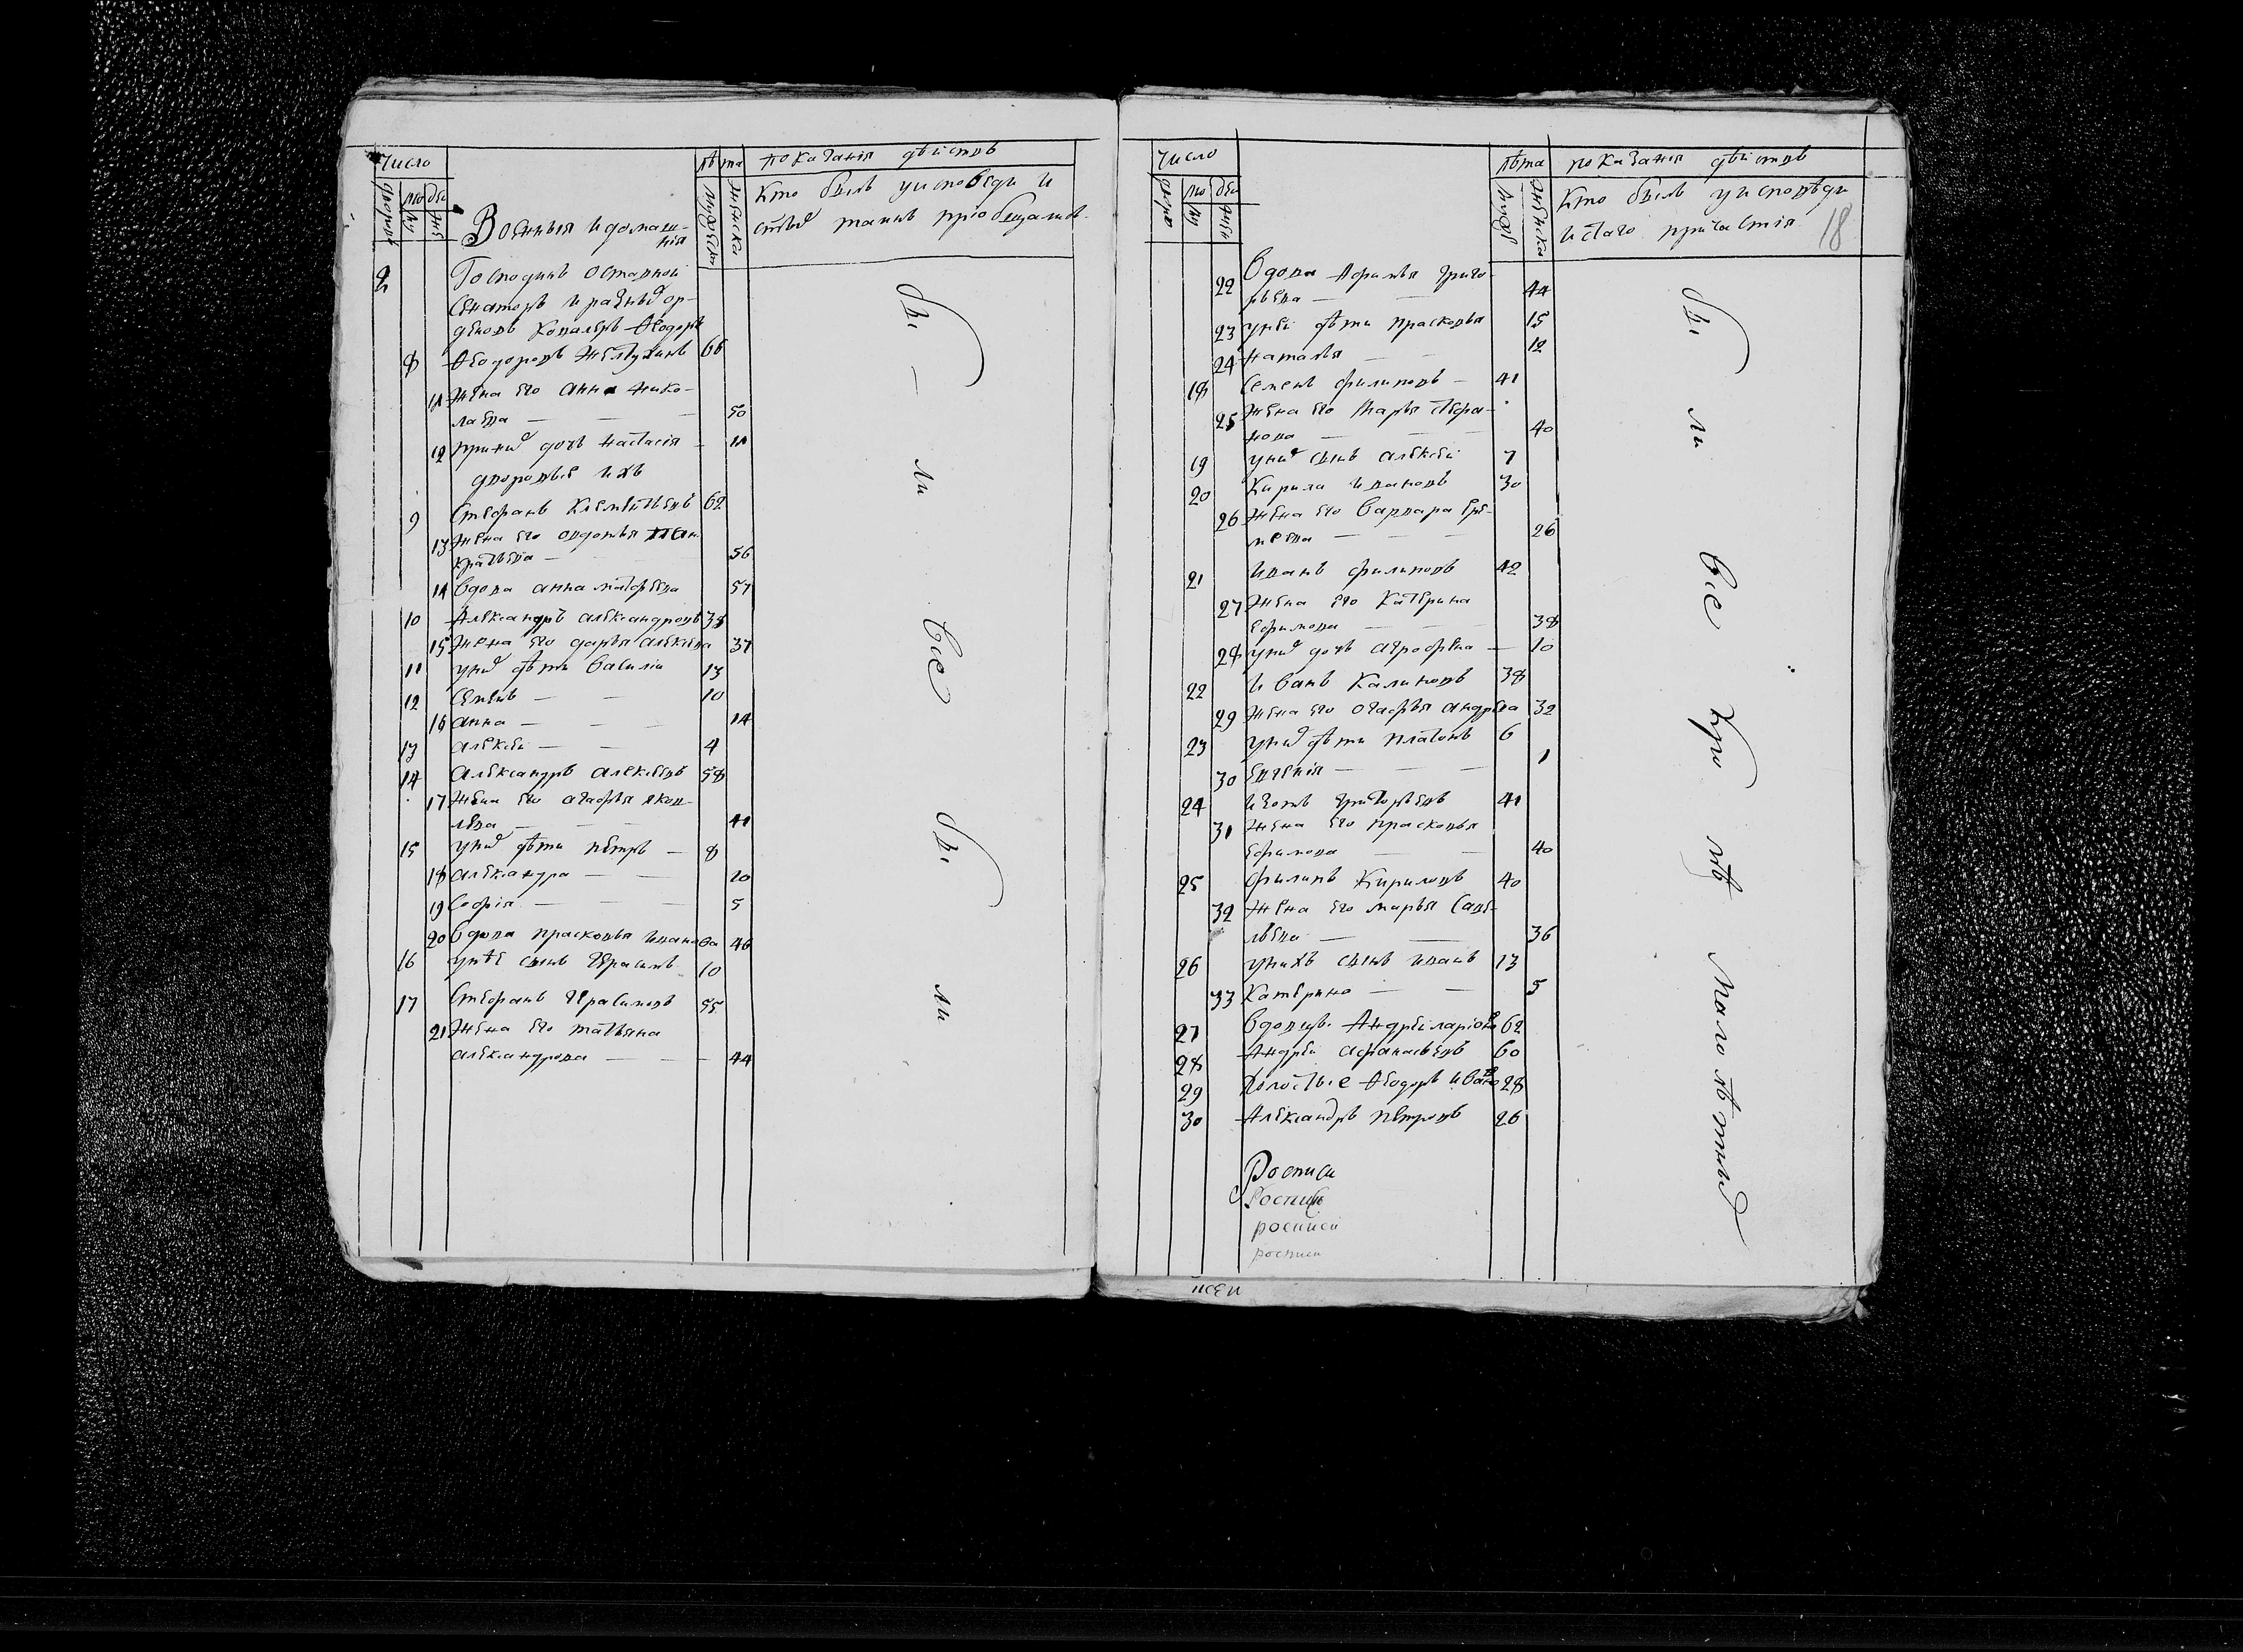 Число
лѣта
показанія дѣйствъ
дворовъ
людей
мужеска
женска
кто былъ у исповѣди и
святыхъ таинъ пріобщались
Военныя и домаш-
нія
2 Господинъ отставной
сенаторъ и разныхъ ор-
деновъ кавалеръ Ѳеодоръ
8 Ѳеодоровъ Желтухинъ 66
11 жена его Анна Нико-
лаевна — — 50
12 приемыш дочь Настасія — 11
дворовые ихъ
9 Стефанъ Клементьевъ 62
13 жена его Авдотья Пан
кратьева — 56
14 вдова Анна Матфеева 57
10 Александръ Александровъ 38
15 жена его Дарья Алексеева 37
11 у нихъ дѣти Василій 13
12 Семенъ — — 10
16 Анна — — — 14
13 Алексей — — 4
14 Александръ Алексеевъ 58
17 жена его Агафья Яков-
лева — — — 41
15 у нихъ дѣти Петръ — 8
18 Александра — — 20
19 Софія — — — 5
20 вдова Прасковья Иванова 46
16 у нее сынъ Герасимъ 10
17 Стефанъ Герасимовъ 55
21 жена его Татьяна
Александрова — — — 44
бы — ли все бы ли
Число
лѣта
показанія дѣйствъ
кто былъ у исповѣди
и святаго причастія
18
22 вдова Афимья Григо-
рьева — — 44
23 у неи дѣти Прасковья 15
24 Наталья — — 12
18 Семенъ Филиповъ — 41
25 жена его Марья Стефа-
нова — — — 40
19 у нихъ сынъ Алексей 7
20 Кирила Ивановъ 30
26 жена его Варвара Ере-
меева — — — 26
21 Иванъ Филиповъ 42
27 жена его Катерина
Ефимова — — 38
28 у нихъ дочь Аграфена — 10
22 Иванъ Калиновъ 38
29 жена его Агафья Андреева 32
23 у нихъ дѣти Платонъ 6
30 Евгенія — — — 1
24 Изотъ Григорьевъ 41
31 жена его Прасковья
Ефимова — — 40
25 Филипъ Кириловъ 40
32 жена его Марья Саве-
льева — — 36
26 у нихъ сынъ Иванъ 13
33 Катерина — — 5
27 вдовцы Андрей Ларіоновъ 62
28 Андрей Афанасьевъ 60
29 Холостые Ѳеодоръ Ивановъ 28
30 Александръ Петровъ 26
Росписи
Росписи
росписи
росписи
бы ли все кромѣ малолѣтныхъ